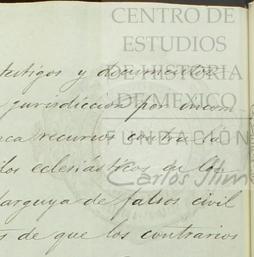 CENTRO DE
ESTUDIOS
DE HISTORIA
DE MEXICO
FUNDACIÓN
Carlos Slim
testigos y documentos
jurisdiccion por incom
recursos contra
los eclesiásticos de los
larguya de falsos civil
de que los contrarios